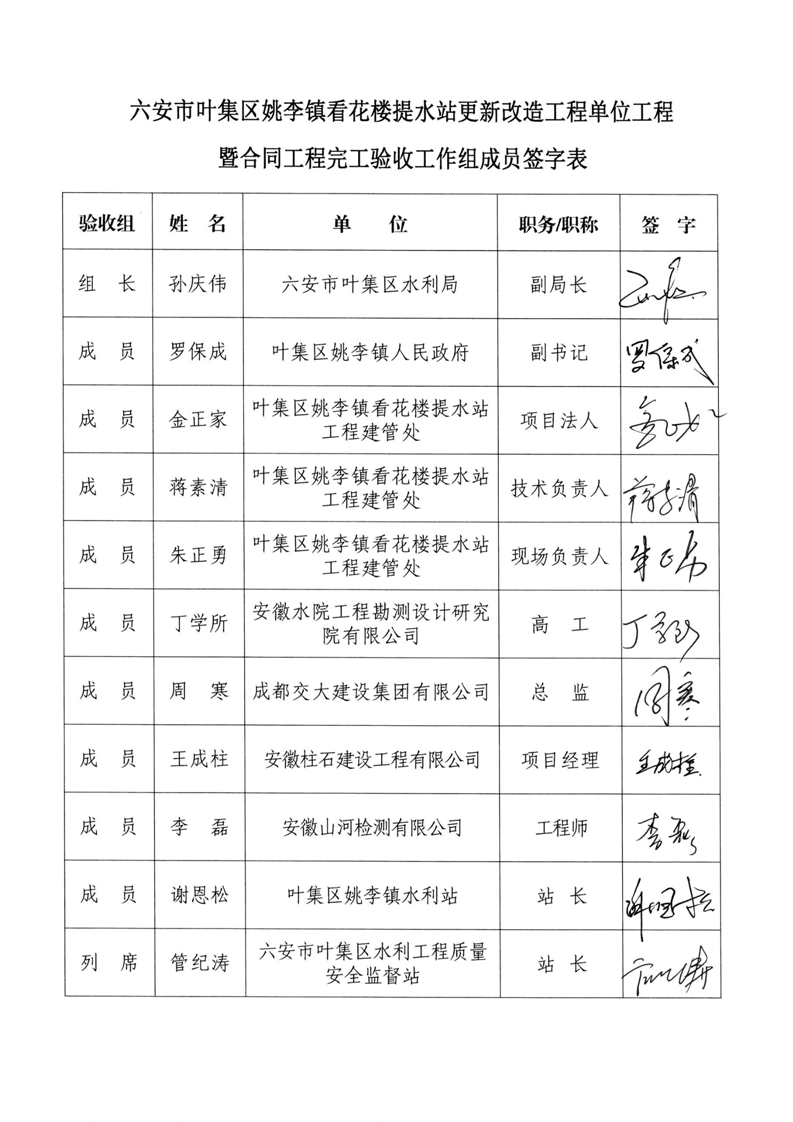 六安市叶集区姚李镇看花楼提水站更新改造工程单位工程
暨合同工程完工验收工作组成员签字表
验收组 姓 名 单 位 职务/职称 签 字
组 长 孙庆伟 六安市叶集区水利局 副局长
成 员 罗保成 叶集区姚李镇人民政府 副书记 罗保成
成 员 金正家 叶集区姚李镇看花楼提水站 项目法人
工程建管处
成 员 蒋素清 叶集区姚李镇看花楼提水站 技术负责人 蒋素清
工程建管处
成 员 朱正勇 叶集区姚李镇看花楼提水站 现场负责人 朱正勇
工程建管处
成 员 丁学所 安徽水院工程勘测设计研究 高 工 丁学所
院有限公司
成 员 周 寒 成都交大建设集团有限公司 总 监 周寒
成 员 王成柱 安徽柱石建设工程有限公司 项目经理 王成柱
成 员 李 磊 安徽山河检测有限公司 工程师 李磊
成 员 谢恩松 叶集区姚李镇水利站 站 长 谢恩松
列 席 管纪涛 六安市叶集区水利工程质量 站 长
安全监督站